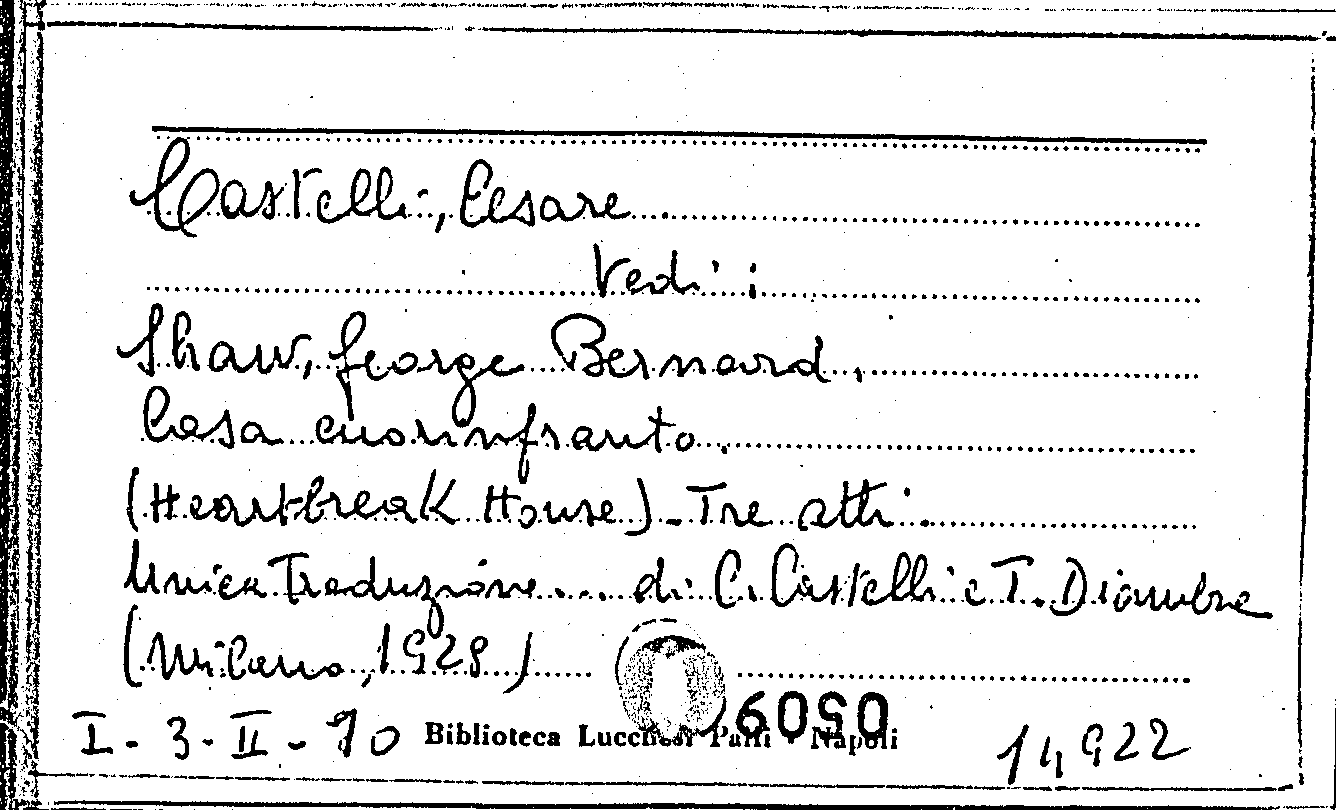 Castelli, Cesare
Vedi:
Shaw, George Bernard.
Casa cuorinfranto.
(Heartbreak House) - Tre atti.
Unica Traduzione... di C. Castelli e T. Diambre
(Milano, 1929)
6050
I - 3 - II - 10 Biblioteca Lucchesi Palli - Napoli 14922